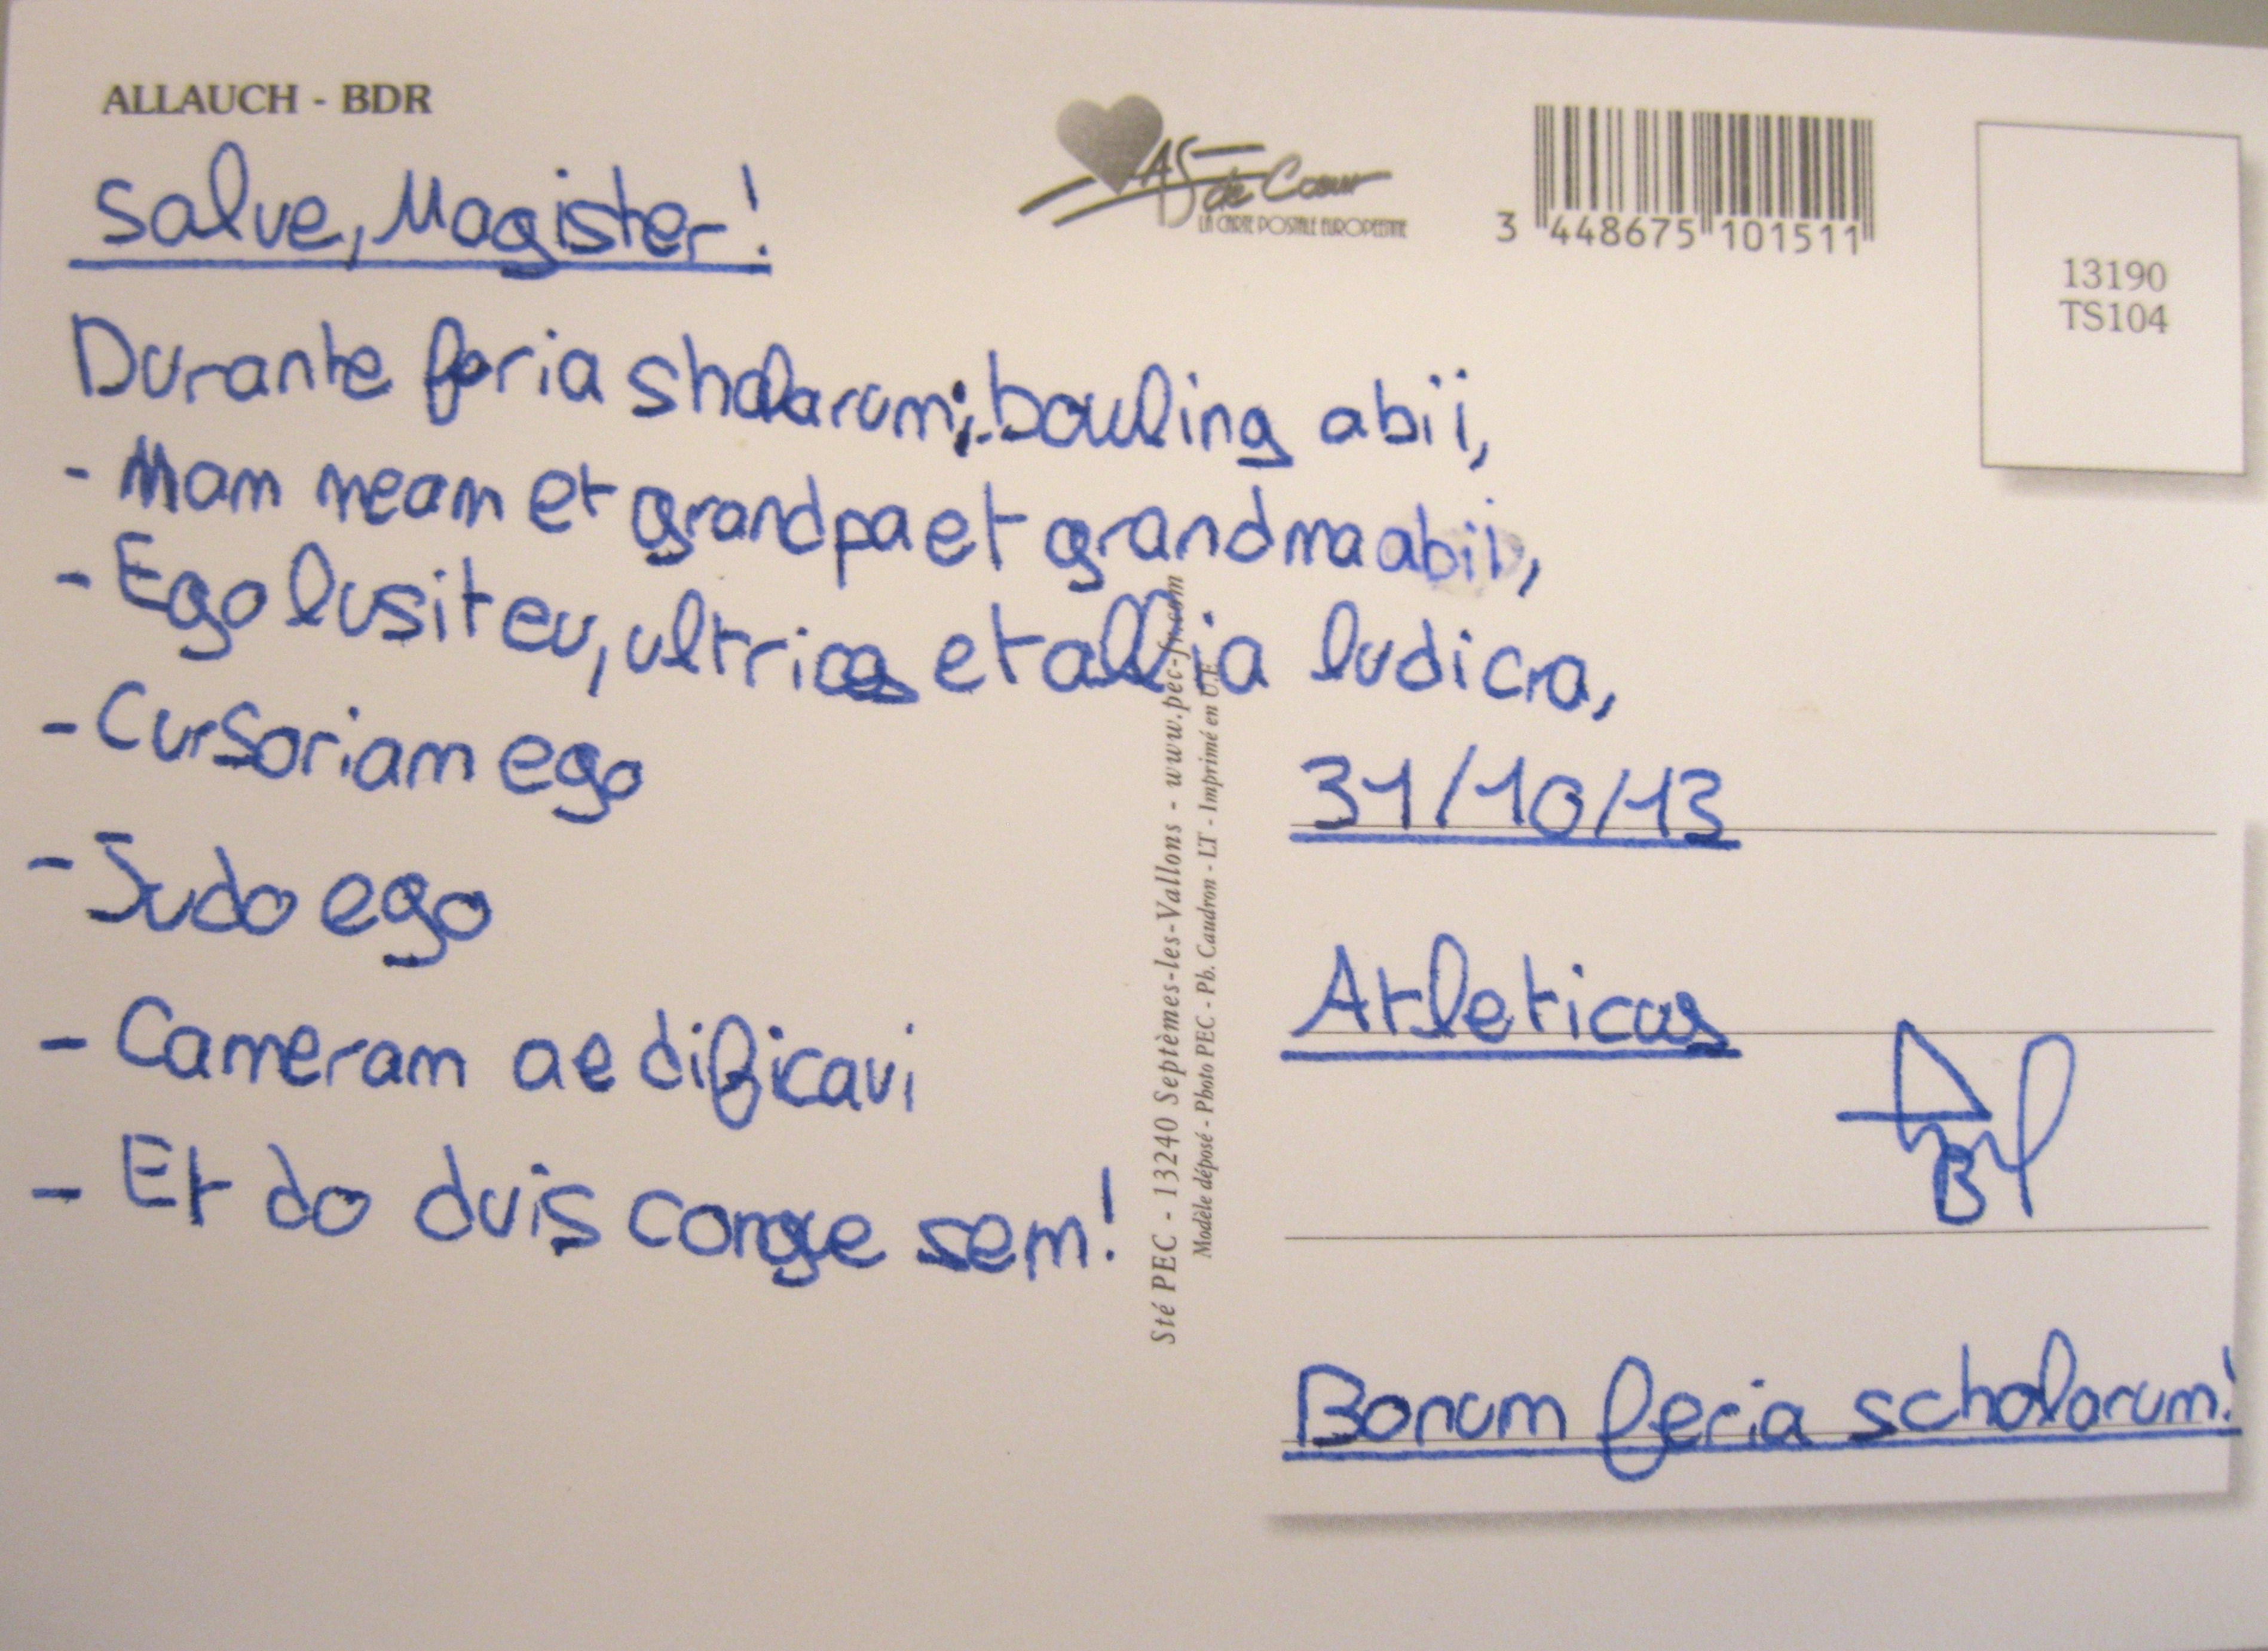 ALLAUCH - BDR
AS de Cœur
LA CARTE POSTALE EUROPEENNE
3 448675 101511
13190
TS104
Salve, Magister!
Durante feria sholarum; bouling abii,
- Mam meam et grandpa et grandma abii,
- Ego lusit eu, ultrices et allia ludicra,
- Cursoriam ego
- Judo ego
- Cameram aedificavi
- Et do duis conge sem!
Sté PEC - 13240 Septèmes-les-Vallons - www.pec-fr.com
Modèle déposé - Photo PEC - Pb. Caudron - LT - Imprimé en U.E.
31/10/13
Atleticus
Bonum feria scholarum!